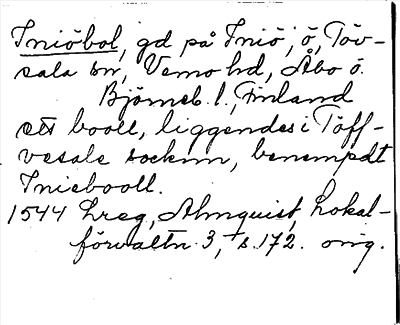 Iniöbol, gd på Iniö, ö, Töv-
sala sn, Vemo hd, Åbo o.
Björneb. l., Finland
ett booll, liggendes i Töff-
vesale socknn, benempdt
Iniebooll.
1544 Lreg, Almquist, Lokal-
förvaltn. 3, s. 172. orig.